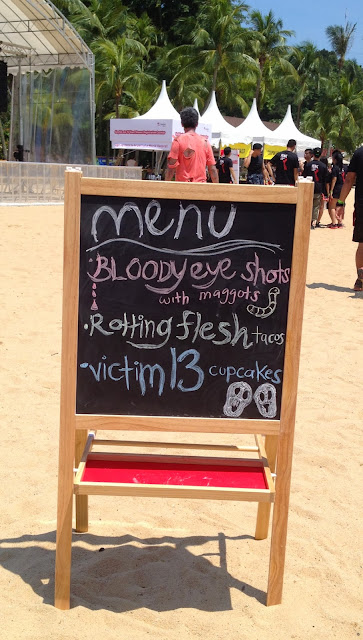 menu
• BLOODY eye shots
with maggots
• Rotting flesh tacos
• victim 13 cupcakes